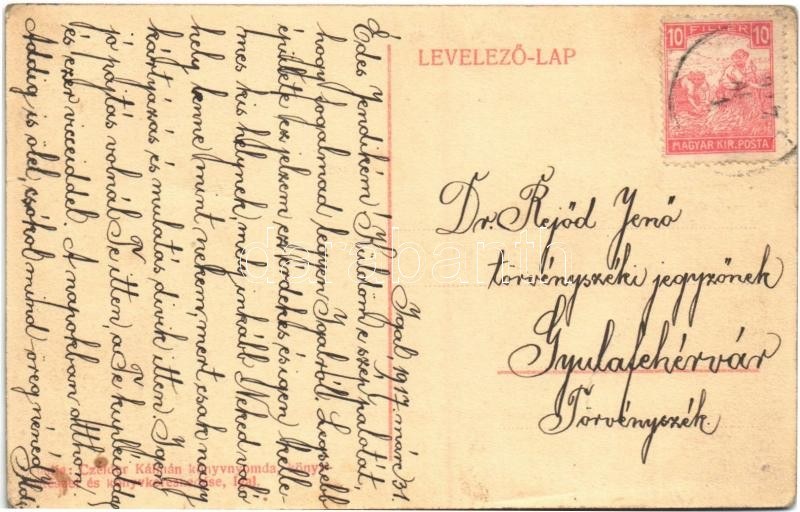 LEVELEZŐ-LAP
10 FILLÉR 10
MAGYAR KIR. POSTA
Dr. Rejőd Jenő
törvényszéki jegyzőnek
Gyulafehérvár
Törvényszék.
Igal, 1917. márc 31.
Édes Jendikém! Küldöm e szép palotát,
hogy fogalmad legyen Igalról. Legszebb
épülete ez jelzem ez érdekes és igen kelle-
mes kis helynek, mely inkább Neked való
hely lenne mint nekem, mert csak nagy
kártyázás és mulatás divik itten. Igen
jó pajtás volnál Te itten, a Te kupléiddal
és ezer vicceiddel. A napokban otthon,
Addig is ölel, csókol mind öreg nénéd
Czeisler Kálmán könyvnyomda, könyv-
és könyvkereskedése, Igal.
darabanth